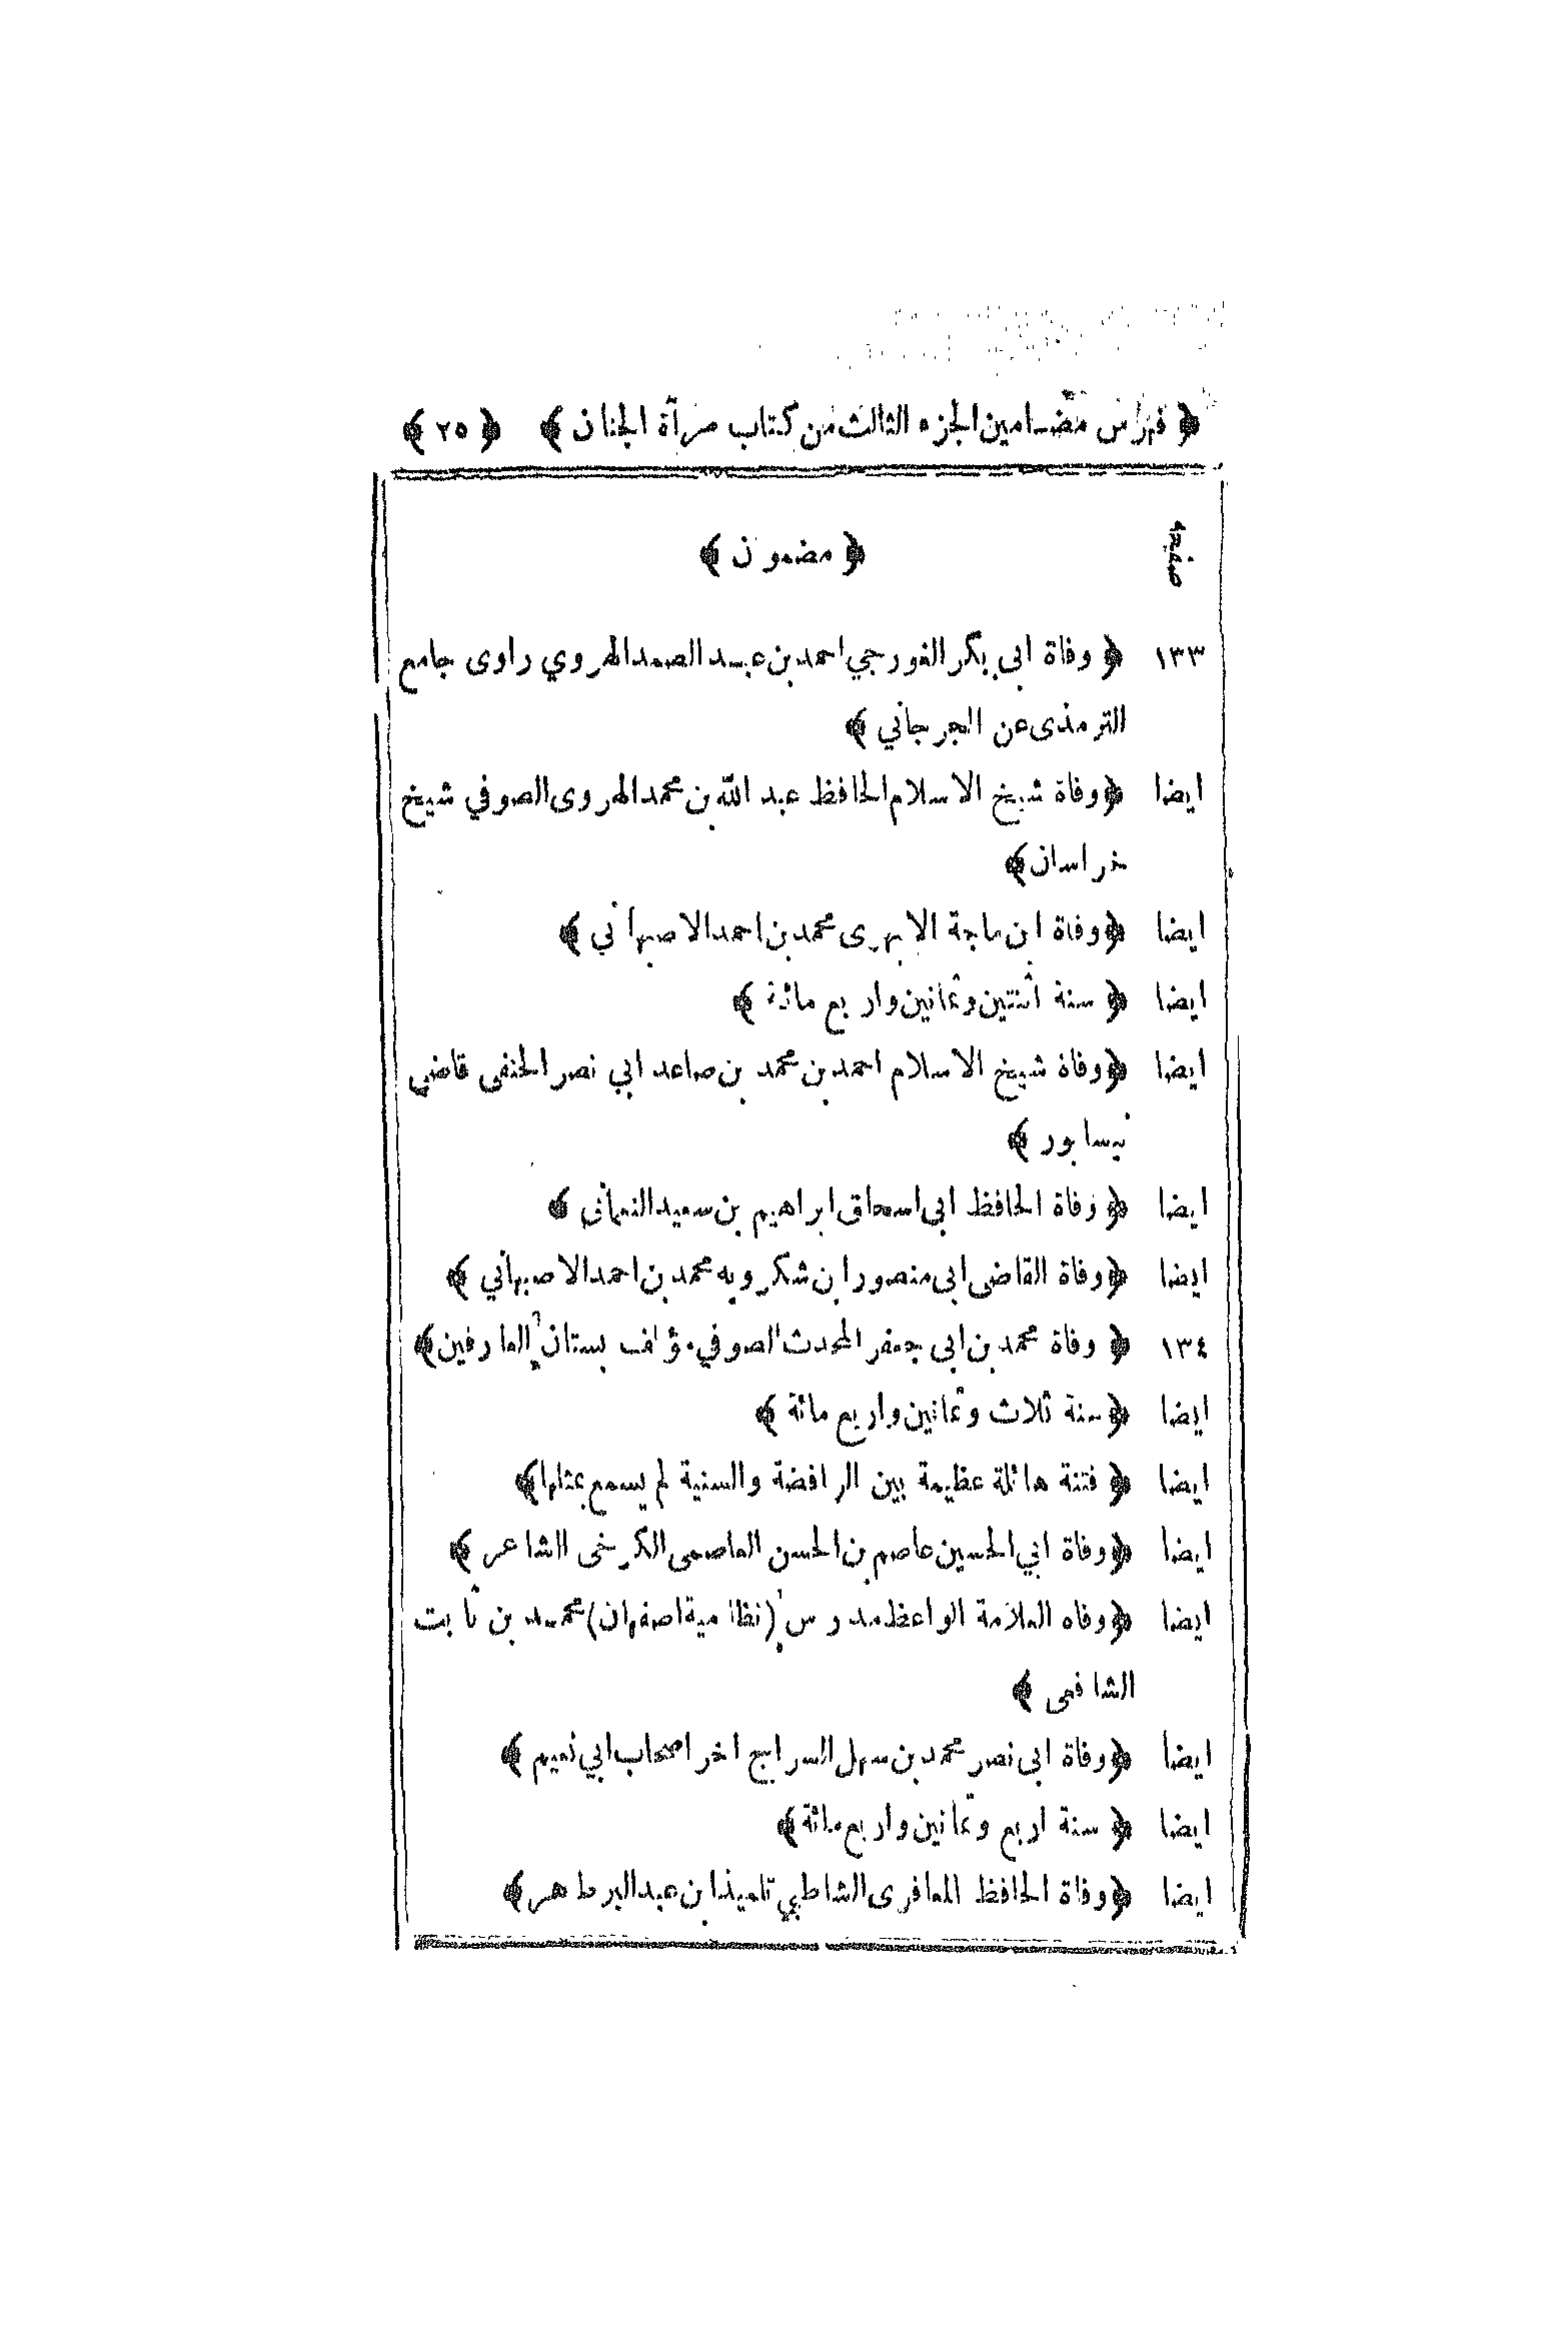 ﴿ فهرس مضامين الجزء الثالث من كتاب مرآة الجنان ﴾ ﴿ ٢٥ ﴾
صفحه ﴿ مضمون ﴾
١٣٣ ﴿ وفاة ابى بكر الغورجي احمد بن عبد الصمد الهروي راوى جامع
الترمذى عن الجرجاني ﴾
ايضا ﴿ وفاة شيخ الاسلام الحافظ عبد الله بن محمد الهروى الصوفي شيخ
خراسان ﴾
ايضا ﴿ وفاة ابن ماجة الابهرى محمد بن احمد الاصبهاني ﴾
ايضا ﴿ سنة اثنتين وثمانين واربع مائة ﴾
ايضا ﴿ وفاة شيخ الاسلام احمد بن محمد بن صاعد ابي نصر الحنفى قاضى
نيسابور ﴾
ايضا ﴿ وفاة الحافظ ابى اسحاق ابراهيم بن سعيد النعمانى ﴾
ايضا ﴿ وفاة القاضى ابى منصور ابن شكرويه محمد بن احمد الاصبهاني ﴾
١٣٤ ﴿ وفاة محمد بن ابى جعفر المحدث الصوفي مؤلف بستان العارفين ﴾
ايضا ﴿ سنة ثلاث وثمانين واربع مائة ﴾
ايضا ﴿ فتنة هائلة عظيمة بين الرافضة والسنية لم يسمع بمثلها ﴾
ايضا ﴿ وفاة ابي الحسين عاصم بن الحسن العاصمى الكرخى الشاعر ﴾
ايضا ﴿ وفاه العلامة الواعظ مدرس (نظامية اصفهان) محمد بن ثابت
الشافعى ﴾
ايضا ﴿ وفاة ابى نصر محمد بن سهل السراج اخر اصحاب ابي نعيم ﴾
ايضا ﴿ سنة اربع وثمانين واربع مائة ﴾
ايضا ﴿ وفاة الحافظ المعافرى الشاطبي تلميذ ابن عبد البر طاهر ﴾